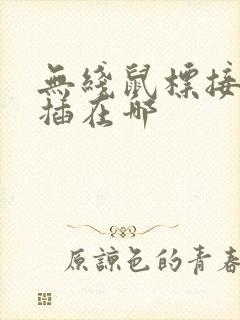 無綫鼠標接
插在哪
原諒色的青春